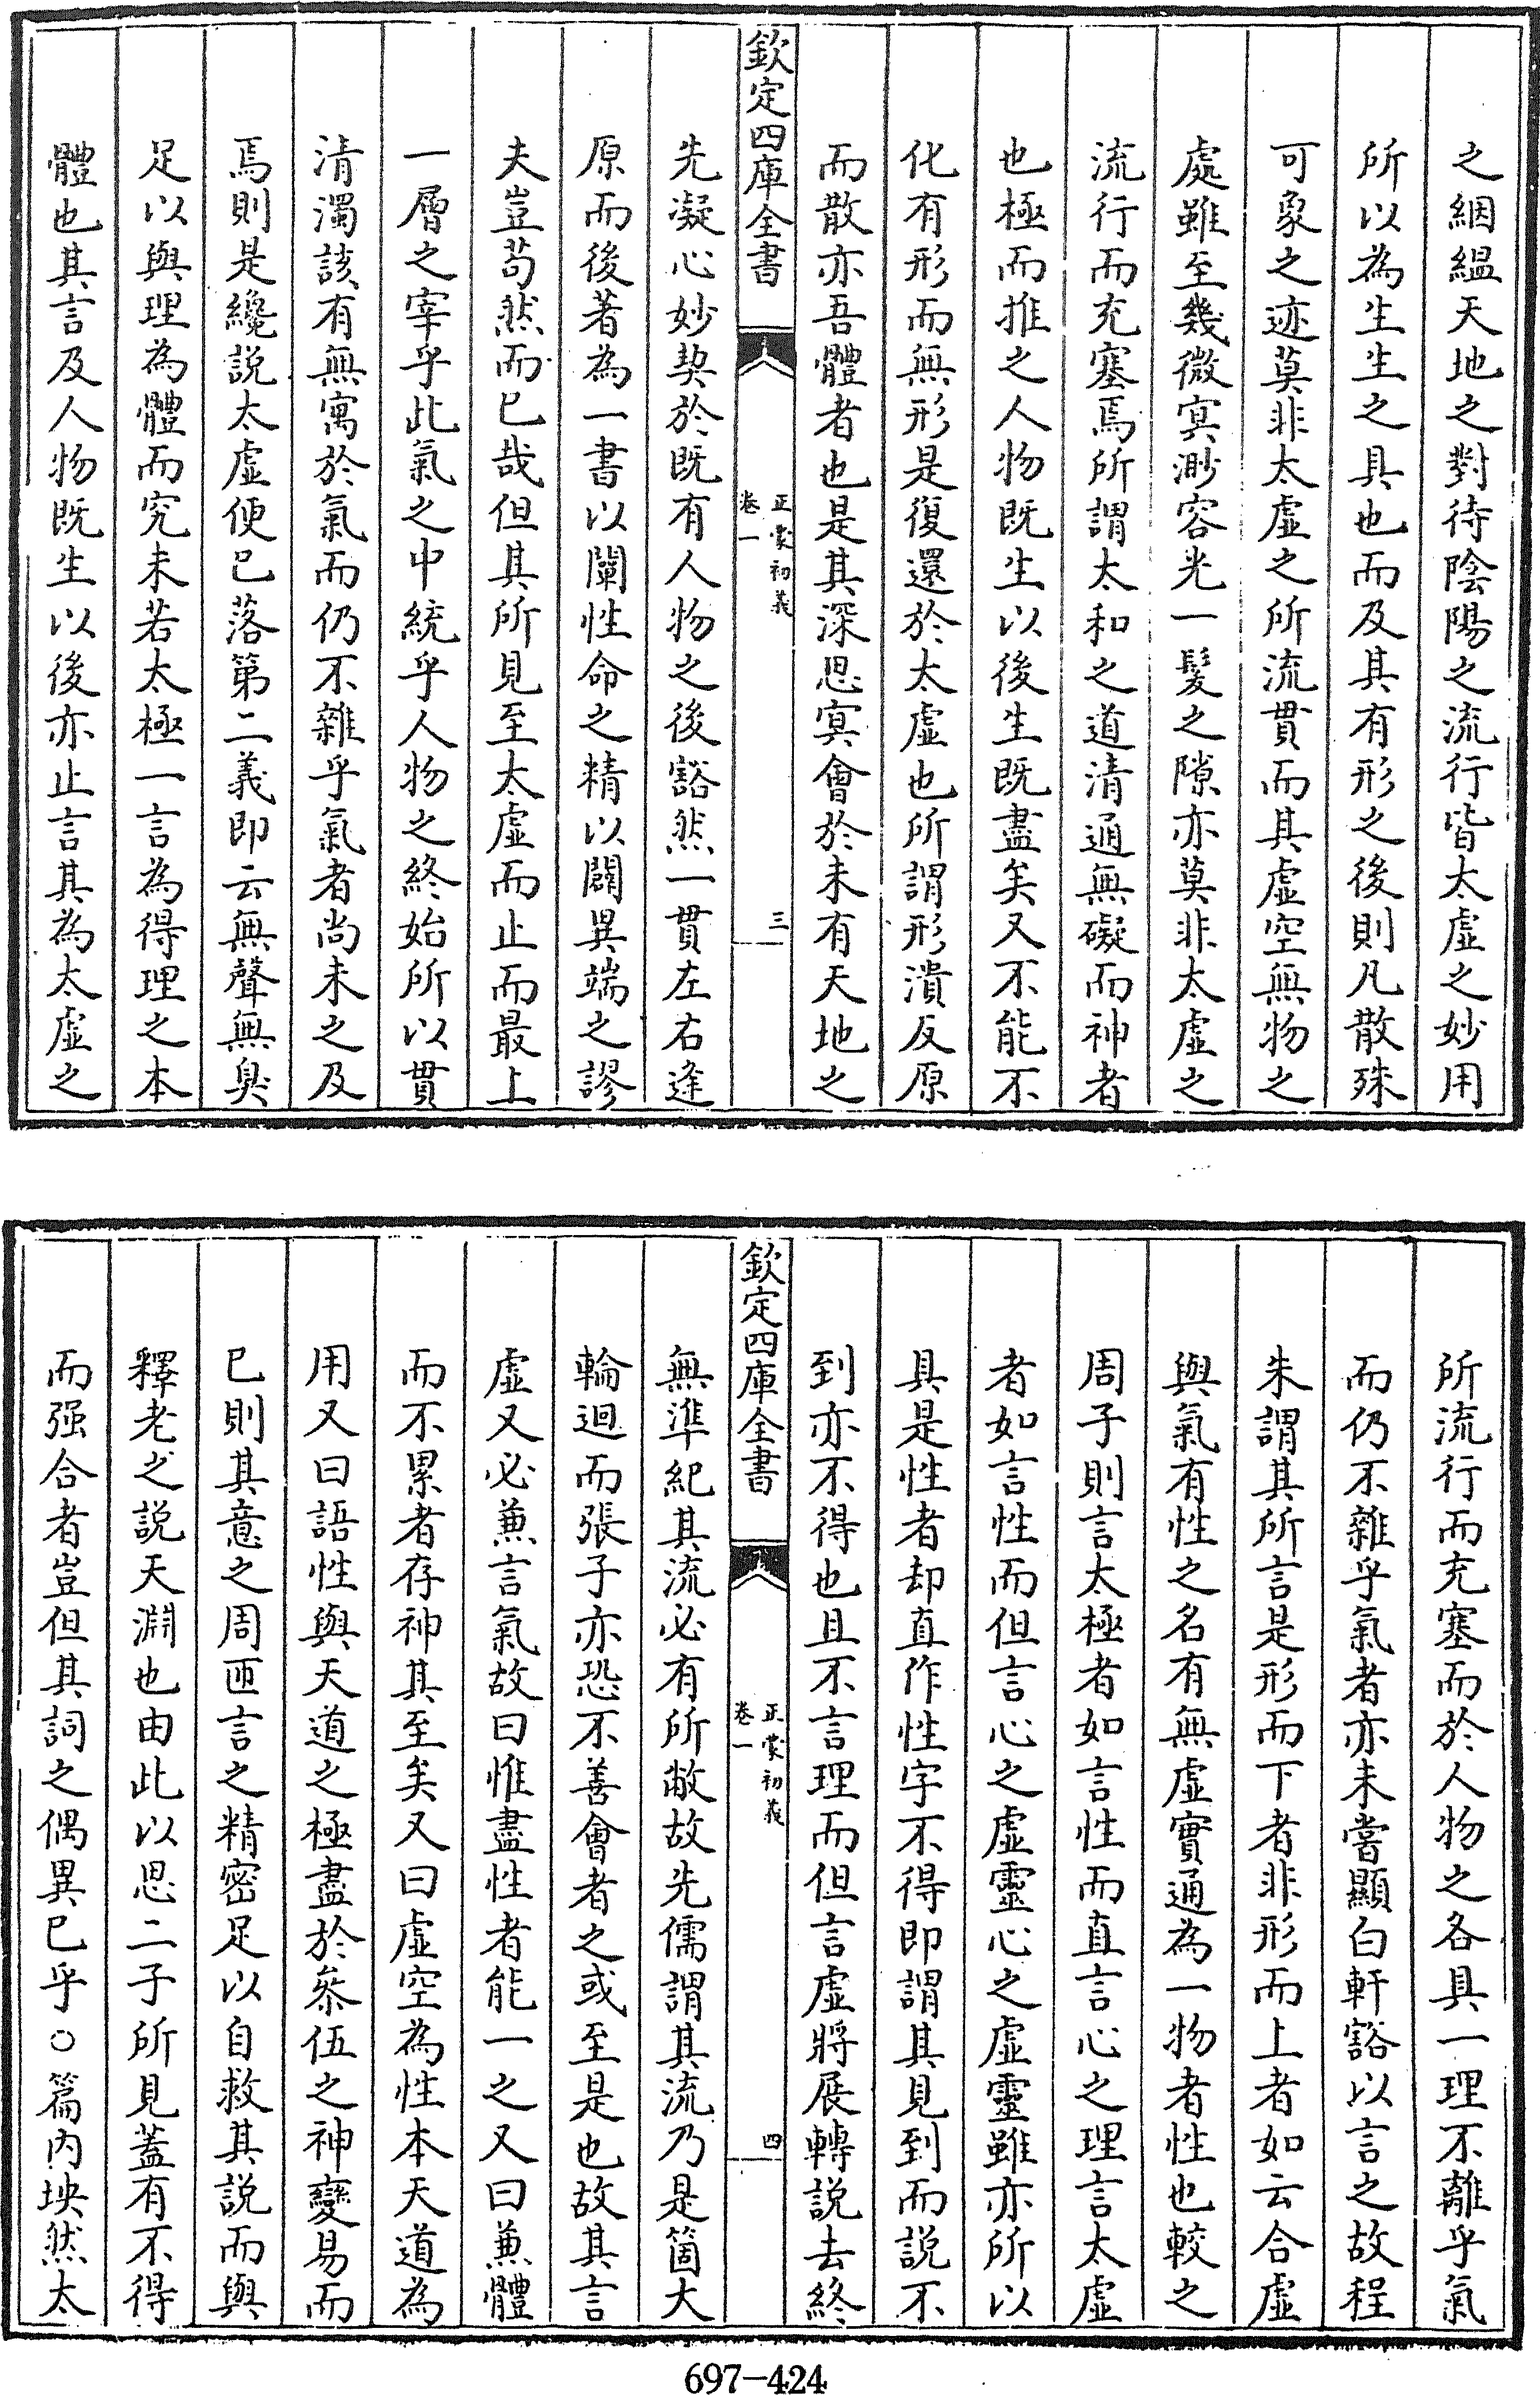 之絪緼天地之對待陰陽之流行皆太虛之妙用
所以為生生之具也而及其有形之後則凡散殊
可象之迹莫非太虛之所流貫而其虛空無物之
處雖至幾微冥渺容光一髮之隙亦莫非太虛之
流行而充塞焉所謂太和之道清通無礙而神者
也極而推之人物既生以後生既盡矣又不能不
化有形而無形是復還於太虛也所謂形潰反原
而散亦吾體者也是其深思冥會於未有天地之
欽定四庫全書
正蒙初義
卷一
三
先凝心妙契於既有人物之後豁然一貫左右逢
原而後著為一書以闡性命之精以闢異端之謬
夫豈苟然而已哉但其所見至太虛而止而最上
一層之宰乎此氣之中統乎人物之終始所以貫
清濁該有無寓於氣而仍不雜乎氣者尚未之及
焉則是纔説太虛便已落第二義即云無聲無臭
足以與理為體而究未若太極一言為得理之本
體也其言及人物既生以後亦止言其為太虛之
所流行而充塞而於人物之各具一理不離乎氣
而仍不雜乎氣者亦未嘗顯白軒豁以言之故程
朱謂其所言是形而下者非形而上者如云合虛
與氣有性之名有無虛實通為一物者性也較之
周子則言太極者如言性而直言心之理言太虛
者如言性而但言心之虛靈心之虛靈雖亦所以
具是性者却直作性字不得即謂其見到而説不
到亦不得也且不言理而但言虛將展轉説去終
欽定四庫全書
正蒙初義
卷一
四
無準紀其流必有所敝故先儒謂其流乃是箇大
輪迴而張子亦恐不善會者之或至是也故其言
虛又必兼言氣故曰惟盡性者能一之又曰兼體
而不累者存神其至矣又曰虛空為性本天道為
用又曰語性與天道之極盡於叅伍之神變易而
已則其意之周匝言之精密足以自救其説而與
釋老之説天淵也由此以思二子所見蓋有不得
而强合者豈但其詞之偶異已乎○篇内坱然太
697-424